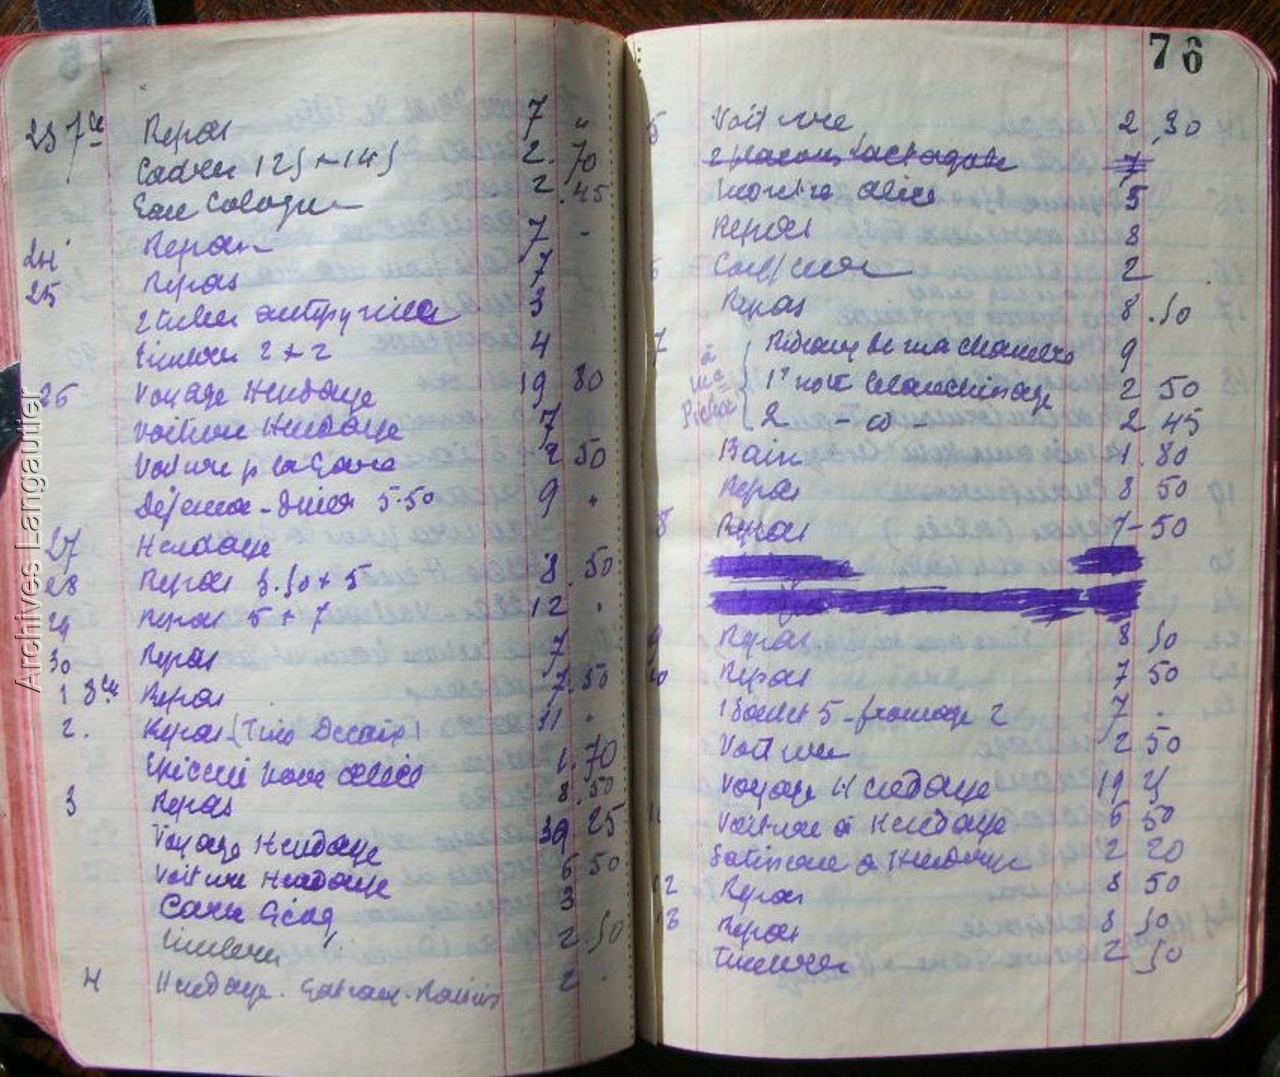 Archives Langautier
23 7bre Repas 7 "
Cadres 125 + 145 2. 70
Eau Cologne 2 .45
24 Repas 7 -
25 Repas 7
2 tubes antipyrine 3
Timbres 2 + 2 4
26 Voyage Hendaye 19 80
Voiture Hendaye 7
Voiture p la Gare 2 50
Déjeuner - Diner 5.50 9 .
27 Hendaye
28 Repas 3.50 + 5 8.50
29 Repas 5 + 7 12 .
30 Repas 7
1 8bre Repas 7.50
2. Repas ( ) 11 .
Alice 1.70
3 Repas 8.50
Voyage Hendaye 39 25
Voiture Hendaye 6 50
Carte 3
Timbres 2.50
4 Hendaye. Gateaux - Raisins 2 .
76
5 Voiture 2 .30
2 flacons 7
Montre Alice 5
Repas 8
6 Coiffeur 2
Repas 8.50
7 Rideaux de ma chambre 9
à 1re note blanchissage 2 50
2 - d° - 2 45
Bain 1.80
Repas 8 50
8 Repas 7-50
9 Repas 8 50
10 Repas 7 50
5 - fromage 2 7 -
Voiture 2 50
Voyage Hendaye 19
11 Voiture à Hendaye 6 50
à Hendaye 2 20
12 Repas 8 50
13 Repas 8 50
Timbres 2 50